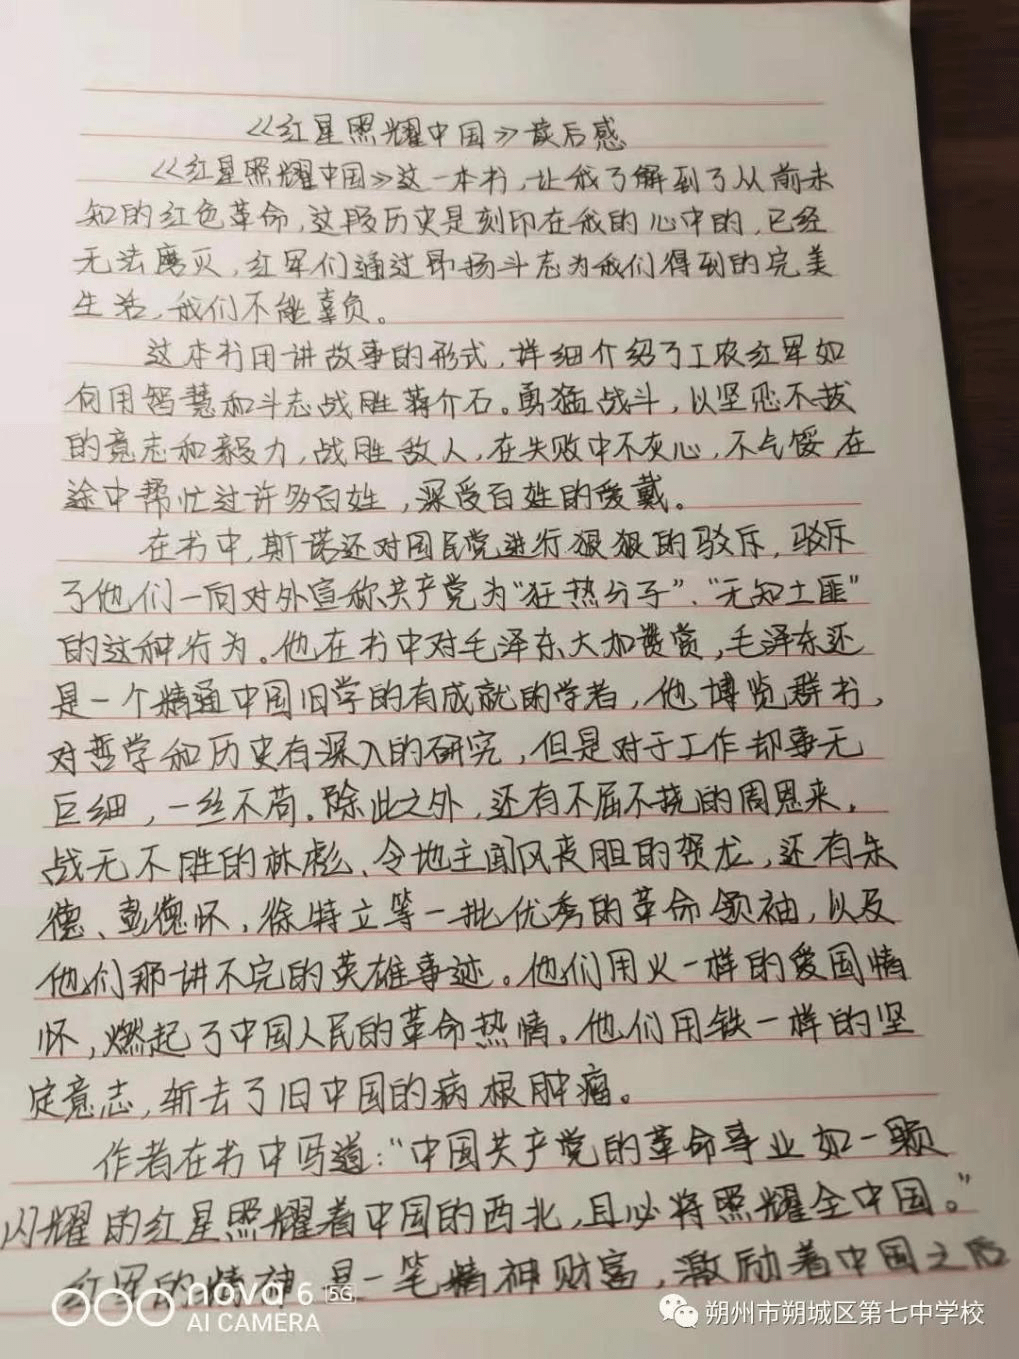 《红星照耀中国》读后感
《红星照耀中国》这一本书,让我了解到了从前未
知的红色革命,这段历史是刻印在我的心中的,已经
无法磨灭,红军们通过昂扬斗志为我们得到的完美
生活,我们不能辜负。
这本书用讲故事的形式,详细介绍了工农红军如
何用智慧和斗志战胜蒋介石。勇猛战斗,以坚忍不拔
的意志和毅力,战胜敌人,在失败中不灰心,不气馁在
途中帮忙过许多百姓,深受百姓的爱戴。
在书中,斯诺还对国民党进行狠狠的驳斥,驳斥
了他们一向对外宣称共产党为“狂热分子”、“无知土匪”
的这种行为。他在书中对毛泽东大加赞赏,毛泽东还
是一个精通中国旧学的有成就的学者,他博览群书,
对哲学和历史有深入的研究,但是对于工作却事无
巨细,一丝不苟。除此之外,还有不屈不挠的周恩来、
战无不胜的林彪、令地主闻风丧胆的贺龙,还有朱
德、彭德怀,徐特立等一批优秀的革命领袖,以及
他们那讲不完的英雄事迹。他们用火一样的爱国情
怀,燃起了中国人民的革命热情。他们用铁一样的坚
定意志,斩去了旧中国的病根肿瘤。
作者在书中写道:“中国共产党的革命事业如一颗
闪耀的红星照耀着中国的西北,且必将照耀全中国。”
红军的精神是一笔精神财富,激励着中国之后
nova 6 5G
AI CAMERA
朔州市朔城区第七中学校